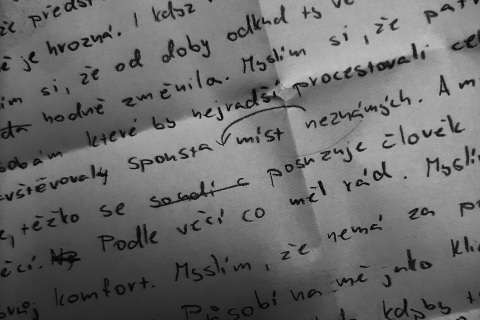 že předs
ě je hrozná. I když
ím si, že od doby odkud ty ve
da hodně změnila. Myslím si, že
sobám které by nejradši procestovali cel
avštěvovaly spousta míst neznámých. A m
e, těžko se soudí c posuzuje člověk
ěcí. Podle věcí co měl rád. Myslím
svůj komfort. Myslím, že nemá za p
Působí na mě jako kli
kdyby t